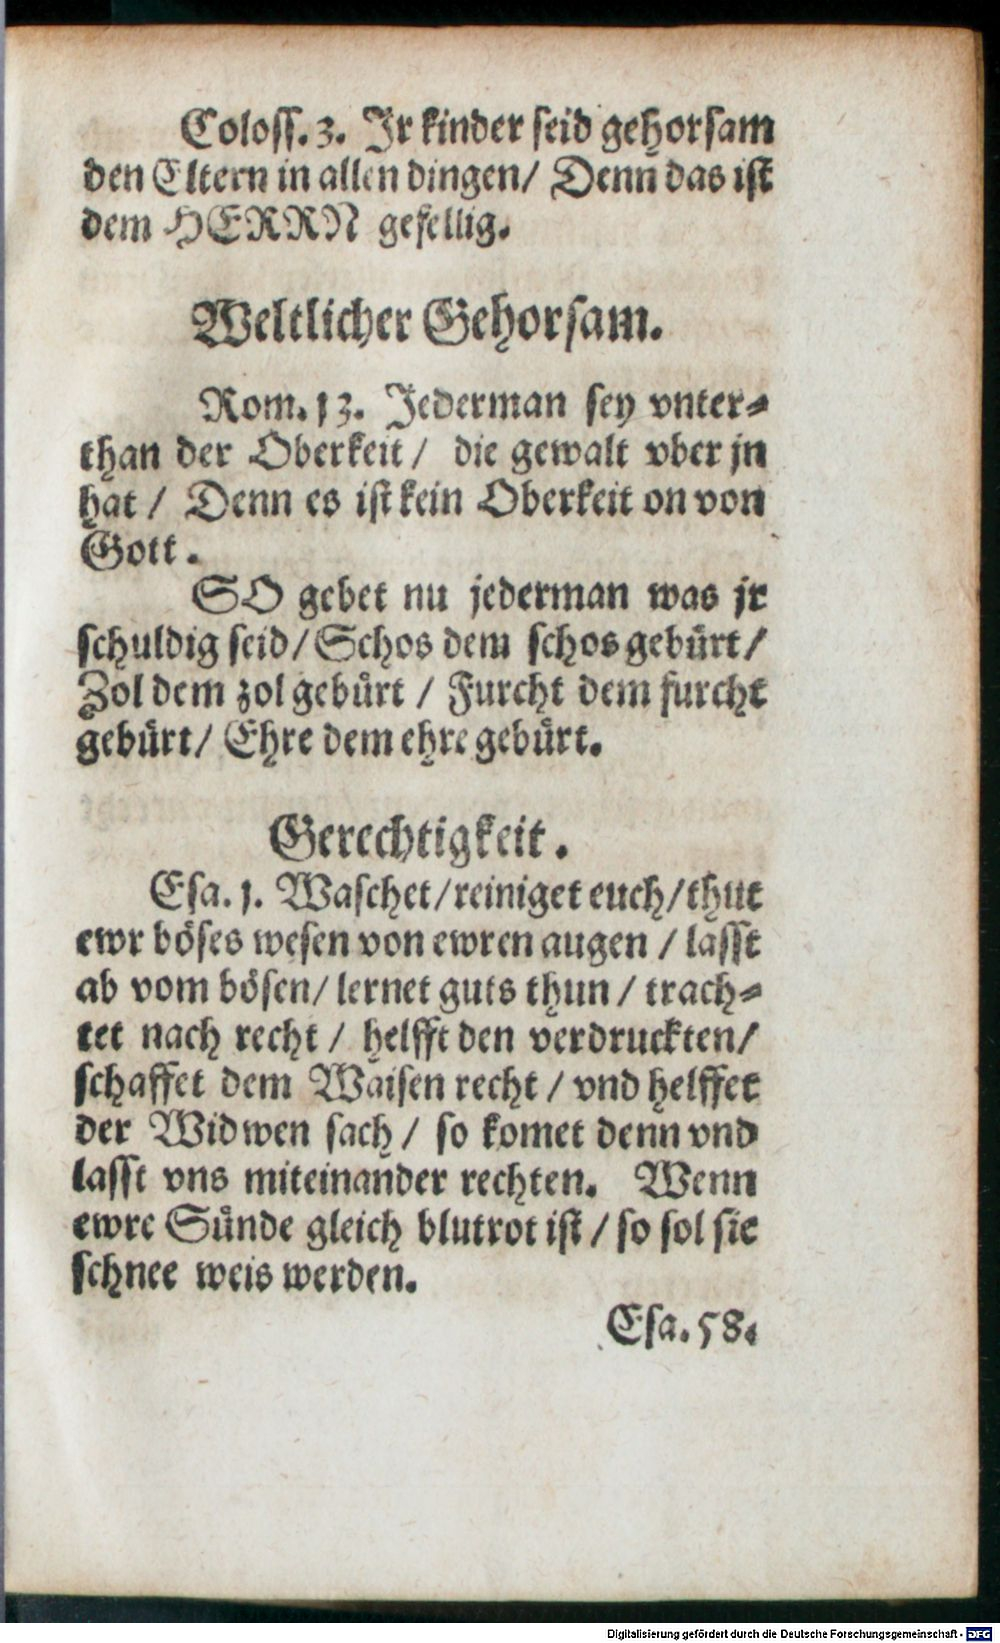 Coloss. 3. Jr kinder seid gehorsam
den Eltern in allen dingen/ Denn das ist
dem HERRN gefellig.
Weltlicher Gehorsam.
Rom. 13. Jederman sey vnter⸗
than der Oberkeit/ die gewalt vber jn
hat/ Denn es ist kein Oberkeit on von
Gott.
SO gebet nu jederman was jr
schuldig seid/ Schos dem schos gebürt/
Zol dem zol gebürt/ Furcht dem furcht
gebürt/ Ehre dem ehre gebürt.
Gerechtigkeit.
Esa. 1. Waschet/ reiniget euch/ thut
ewr böses wesen von ewren augen/ lasst
ab vom bösen/ lernet guts thun/ trach⸗
tet nach recht/ helfft den verdruckten/
schaffet dem Waisen recht/ vnd helffet
der Widwen sach/ so komet denn vnd
lasst vns miteinander rechten. Wenn
ewre Sünde gleich blutrot ist/ so sol sie
schnee weis werden.
Esa. 58.
Digitalisierung gefördert durch die Deutsche Forschungsgemeinschaft - DFG